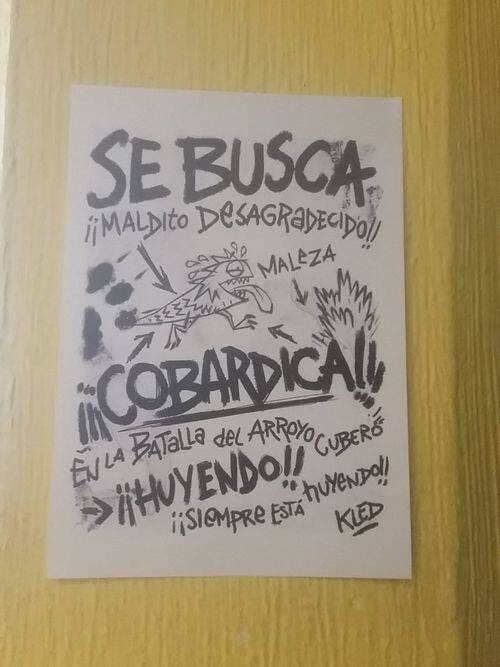 SE BUSCA
¡¡MALDITO DESAGRADECIDO!!
MALEZA
¡¡¡COBARDICA!!!
EN LA BATALLA del ARROYO CUBERO
¡¡HUYENDO!!
¡¡SIEMPRE ESTÁ HUYENDO!!
KLED